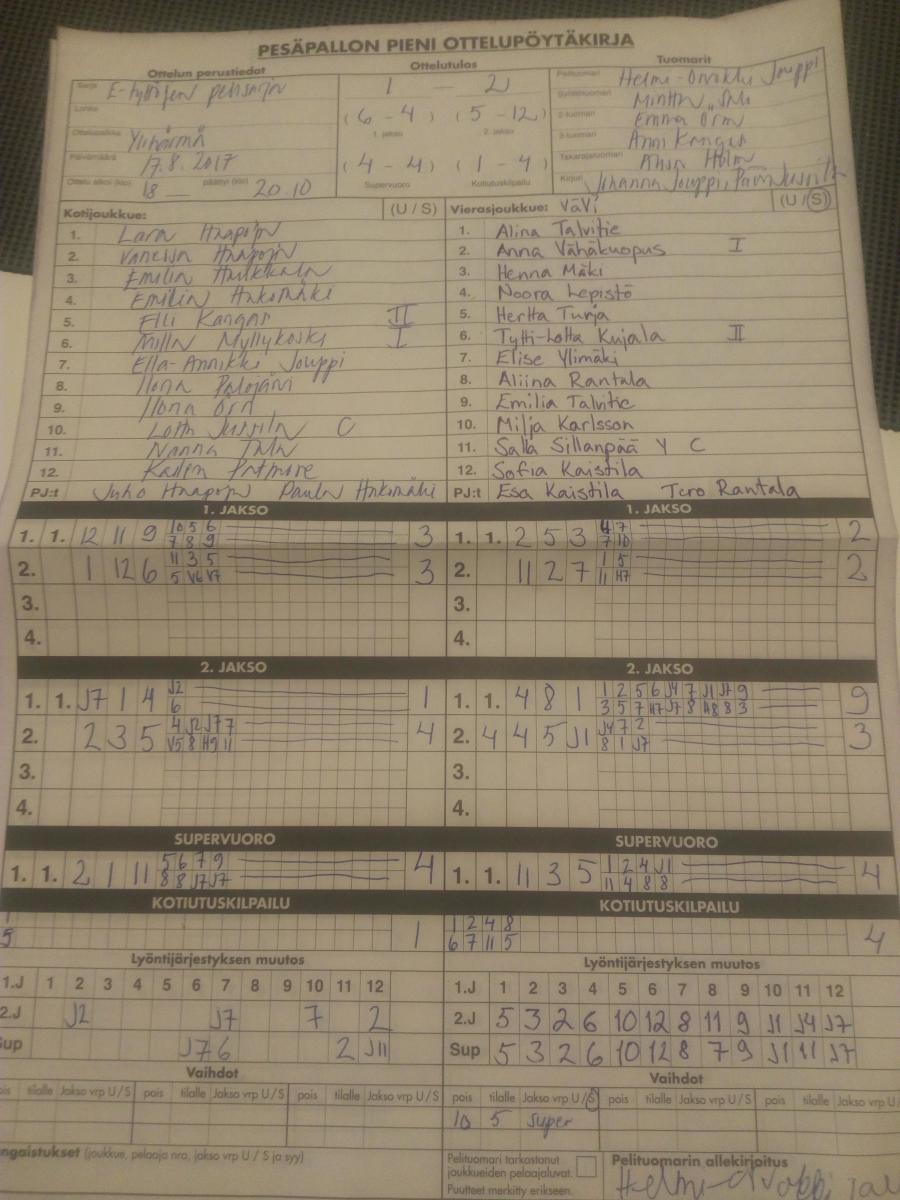 PESÄPALLON PIENI OTTELUPÖYTÄKIRJA
Ottelun perustiedot
Ottelutulos
Tuomarit
Sarja E-tyttöjen
1 — 2
(6 - 4) (5 - 12)
1. jakso 2. jakso
(4 - 4) (1 - 4)
Supervuoro Kotiutuskilpailu
Lohko
Ottelupaikka Ylihärmä
Päivämäärä 17.8.2017
Ottelu alkoi (klo) 18 päättyi (klo) 20.10
Pelituomari Jouppi
Syöttötuomari
2-tuomari Emma Örn
3-tuomari Anni Kangas
Takarajatuomari Holm
Kirjuri Johanna Jouppi,
Kotijoukkue: (U / S)
1. Lara Haapoja
2. Vanessa Haapoja
3. Emilia
4. Emilia Hakomäki
5. Elli Kangas II
6. Milla Myllykoski I
7. Ella-Annikki Jouppi
8. Ilona Palojärvi
9. Ilona Örn
10. Lotta Jussila C
11. Nanna
12.
PJ:t Juho Haapoja Paula Hakomäki
Vierasjoukkue: ViVi (U / S)
1. Alina Talvitie
2. Anna Vähäkuopus I
3. Henna Mäki
4. Noora Lepistö
5. Hertta Turja
6. Tytti-Lotta Kujala II
7. Elise Ylimäki
8. Aliina Rantala
9. Emilia Talvitie
10. Milja Karlsson
11. Salla Sillanpää Y C
12. Sofia Kaistila
PJ:t Esa Kaistila Tero Rantala
1. JAKSO 1. JAKSO
1. 1. 12 11 9 10 5 6 3
7 8 9
2. 1 12 6 11 3 5 3
5 V6 V7
3.
4.
1. 1. 2 5 3 4 7 2
7 10
2. 11 2 7 1 5 2
11 H7
3.
4.
2. JAKSO 2. JAKSO
1. 1. J7 1 4 J2 1
6
2. 2 3 5 4 J2 J7 7 4
V5 8 H9 11
3.
4.
1. 1. 4 8 1 1 2 5 6 J4 7 J1 J7 9 9
3 5 7 H7 J7 8 H8 8 3
2. 4 4 5 J1 J4 7 2 3
8 1 J7
3.
4.
SUPERVUORO SUPERVUORO
1. 1. 2 1 11 5 6 7 9 4
8 8 J7 J7
1. 1. 11 3 5 1 2 4 J1 4
11 4 8 8
KOTIUTUSKILPAILU KOTIUTUSKILPAILU
1
5 1
1 2 4 8
6 7 11 5 4
Lyöntijärjestyksen muutos
1.J 1 2 3 4 5 6 7 8 9 10 11 12
2.J J2 J7 7 2
Sup J7 6 2 J11
Lyöntijärjestyksen muutos
1.J 1 2 3 4 5 6 7 8 9 10 11 12
2.J 5 3 2 6 10 12 8 11 9 J1 J4 J7
Sup 5 3 2 6 10 12 8 7 9 J1 11 J7
Vaihdot Vaihdot
ois tilalle Jakso vrp U/S pois tilalle Jakso vrp U/S pois tilalle Jakso vrp U/S
pois tilalle Jakso vrp U/S pois tilalle Jakso vrp U/S pois tilalle Jakso vrp U/
10 5 super
ngaistukset (joukkue, pelaaja nro, jakso vrp U / S ja syy)
Pelituomari tarkastanut
joukkueiden pelaajaluvat.
Puutteet merkitty erikseen.
Pelituomarin allekirjoitus